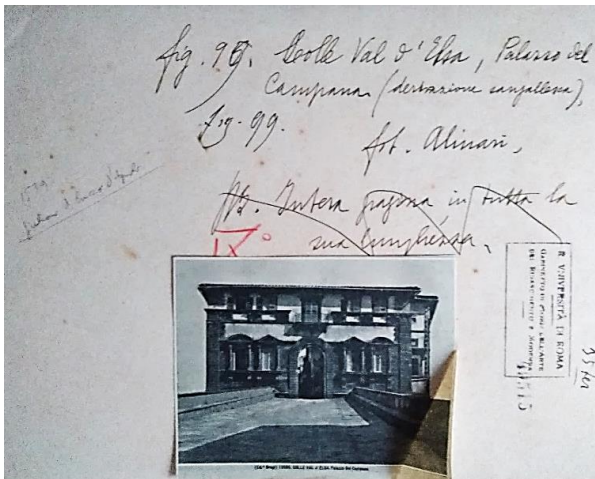 fig. 99. Colle Val d'Elsa, Palazzo del
Campana (derivazione sangallesca),
fig. 99.
fot. Alinari,
NB. Intera pagina in tutta la
sua lunghezza.
IX°
R. UNIVERSITÀ DI ROMA
GABINETTO DI STORIA DELL'ARTE
DEL RINASCIMENTO E MODERNA
COLLE VAL D'ELSA. Palazzo dei Campana.